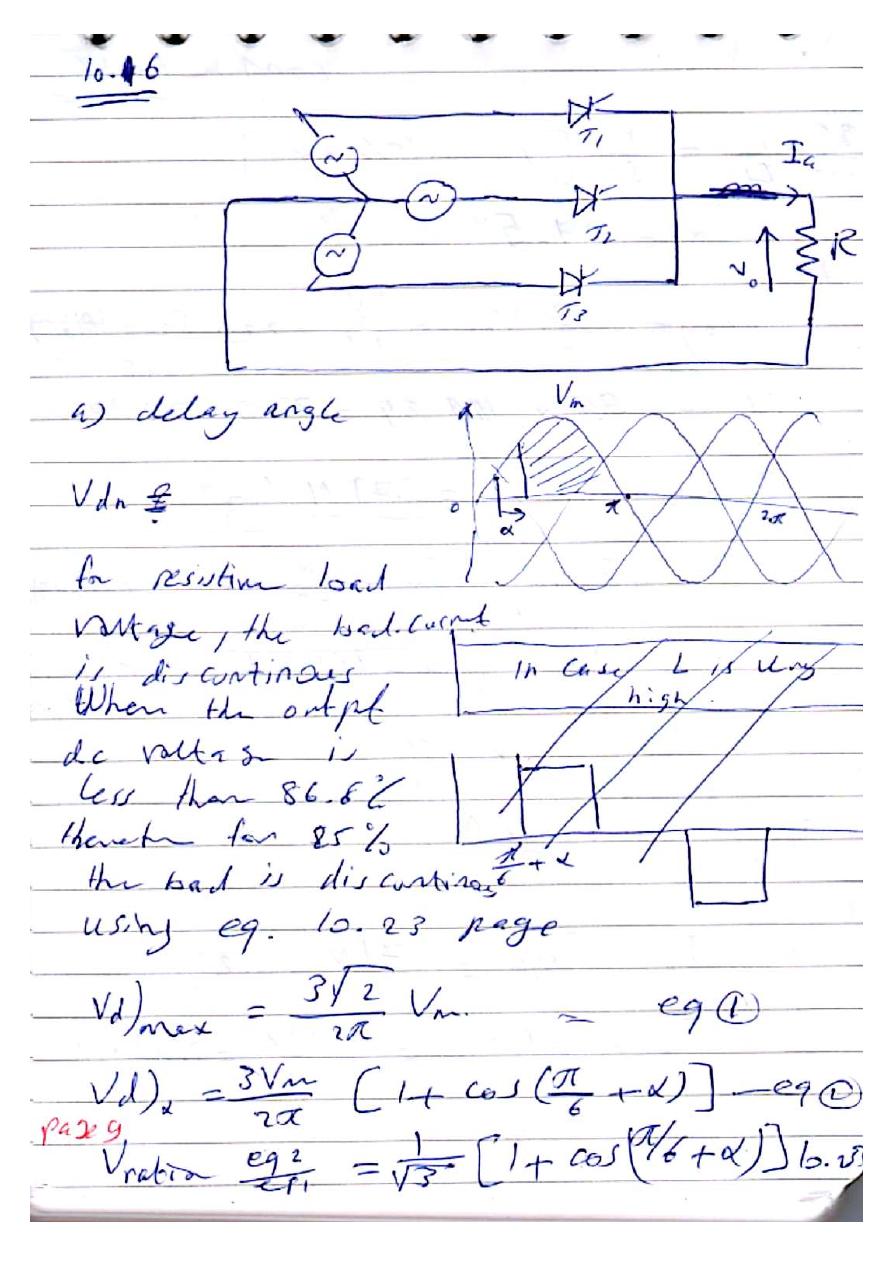 10.16
T1
Ia
T2
R
Vo
T3
a) delay angle
Vm
Vdn =
0
α
π
2π
for resistive load
voltage, the load current
is discontinous
In case L is very
high
When the output
dc voltage is
less than 86.6%
therefor for 85%
π/6 + α
the load is discontinous
using eq. 10.23 page
Vd)max = 3√2/2π Vm. — eq ①
Vd)α = 3Vm/2π [1+ cos(π/6 + α)] — eq ②
page 9
Vration eq 2/eq 1 = 1/√3 [1+ cos(π/6 + α)] 10.23